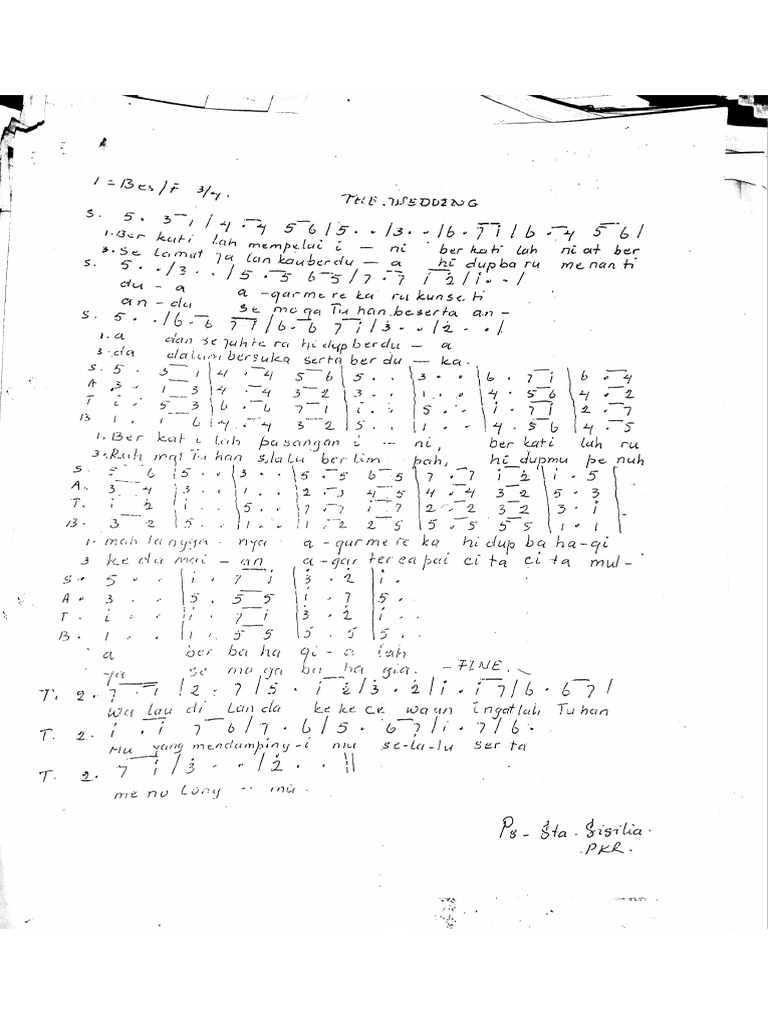 1 = Bes / F 3/4.
THE WEDDING
S. 5 . 3 1 / 4 . 4 5 6 / 5 . . / 3 . . / 6 . 7 1 / 6 . 4 5 6 /
1. Ber kati lah mempelai i — ni ber kati lah ni at ber
3. Se lamat ja lan kau berdu — a hi dup ba ru me nan ti
S. 5 . . / 3 . . / 5 . 5 6 5 / 7 . 7 1 2 / 1 . . /
du — a a - gar me re ka ru kun se ti
an — du se mo ga Tu han beserta an -
S. 5 . . / 6 . 6 7 1 / 6 . 6 7 1 / 3 . . / 2 . . /
1. a dan se jah te ra hi dup ber du — a
3. da dalam bersuka serta ber du — ka.
S. 5 . 3 1 | 4 . 4 5 6 | 5 . . | 3 . . | 6 . 7 1 | 6 . 4
A 3 . 1 3 | 4 . 4 3 2 | 3 . . | 1 . . | 4 . 5 6 | 4 . 2
T 1 . 5 3 | 6 . 6 7 1 | 1 . . | 5 . . | 1 . 7 1 | 2 . 7
B 1 . 1 6 | 4 . 4 3 2 | 5 . . | 1 . . | 4 . 5 6 | 4 . 5
1. Ber kat i lah pasangan i — ni, ber kati lah ru
3. Rah mat Tu han s,lalu ber lim pah, hi dupmu pe nuh
S. 5 6 | 5 . . | 3 . . | 5 . 5 6 5 | 7 . 7 1 2 | 1 . 5
A. 3 4 | 3 . . | 1 . . | 2 . 3 4 5 | 4 . 4 3 2 | 5 . 3
T. 1 2 | 1 . . | 5 . . | 7 . 7 1 7 | 2 . 2 3 2 | 3 . 1
B. 3 2 | 5 . . | 1 . . | 1 . 2 2 5 | 5 . 5 5 5 | 1 . 1
1. mah tangga nya a - gar me re ka hi dup ba ha - gi
3 ke da mai — an a - gar tercapai ci ta ci ta mul -
S. 5 . . | 1 . 7 1 | 3 . 2 | 1 .
A. 3 . . | 5 . 5 5 | 1 . 7 | 5 .
T. 1 . . | 1 . 7 1 | 3 . 2 | 1 .
B. 1 . . | 1 . 5 5 | 5 . 5 | 5 .
a ber ba ha gi - a lah
ya se mo ga ba ha gia. - FINE.
T. 2. 7 . 1 / 2 . 7 / 5 . 1 2 / 3 . 2 / 1 . 1 7 / 6 . 6 7 /
wa lau di Lan da ke ke ce waan ingatlah Tu han
T. 2. 1 . 1 7 6 / 7 . 6 / 5 . 6 7 / 1 . 7 / 6 .
Mu yang mendamping - i mu se - la - lu ser ta
T. 2. 7 1 / 3 . . / 2 . . ||
me no Long -- mu.
Ps - Sta . Sisilia.
PKR.